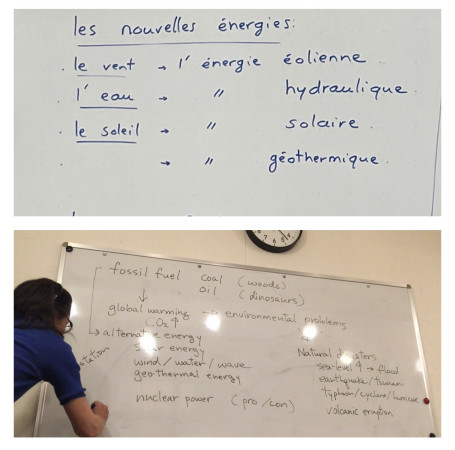 les nouvelles énergies:
. le vent → l' énergie éolienne.
. l' eau → " hydraulique.
. le soleil → " solaire.
. → " géothermique.
7 6 5
fossil fuel coal (woods)
oil (dinosaurs)
↓
global warming → environmental problems
CO₂ ↑
↳ alternate energy
energy
wind / water / wave
geothermal energy
nuclear power (pro / con)
Natural disasters
sea-level ↑ → flood
earthquake / tsunami
typhoon / cyclone / hurricane
volcanic eruption